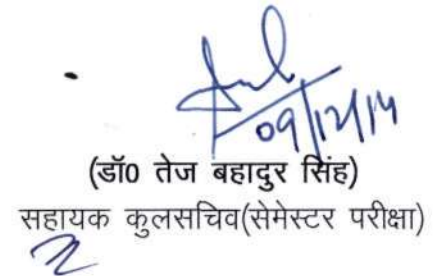 09/12/14
(डॉ0 तेज बहादुर सिंह)
सहायक कुलसचिव(सेमेस्टर परीक्षा)